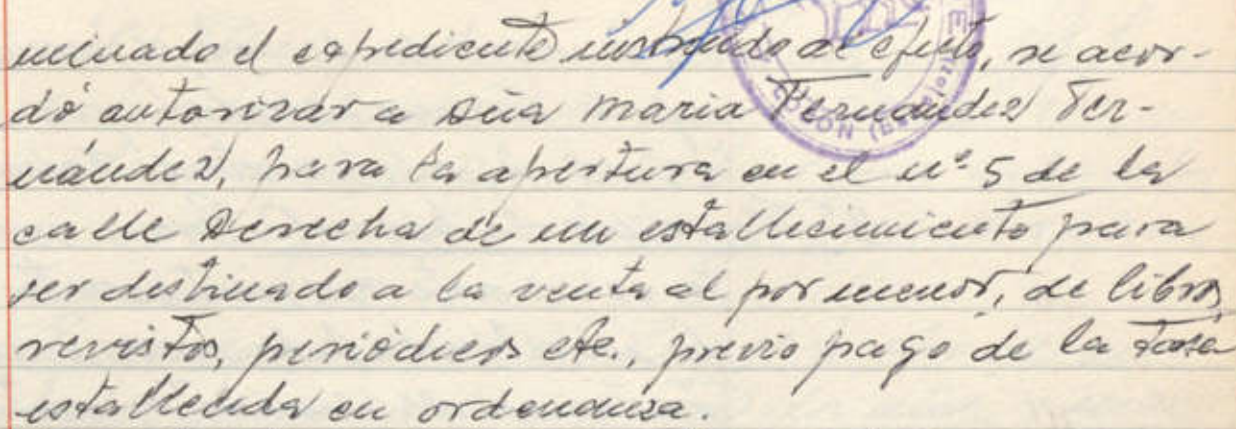 minado el expediente instruido al efecto, se acor-
dó autorizar a Dña Maria Fernandez Fer-
nández, para la apertura en el nº 5 de la
calle Derecha de un establecimiento para
ser destinado a la venta al por menor, de libros,
revistas, periódicos etc., previo pago de la tasa
establecida en ordenanza.